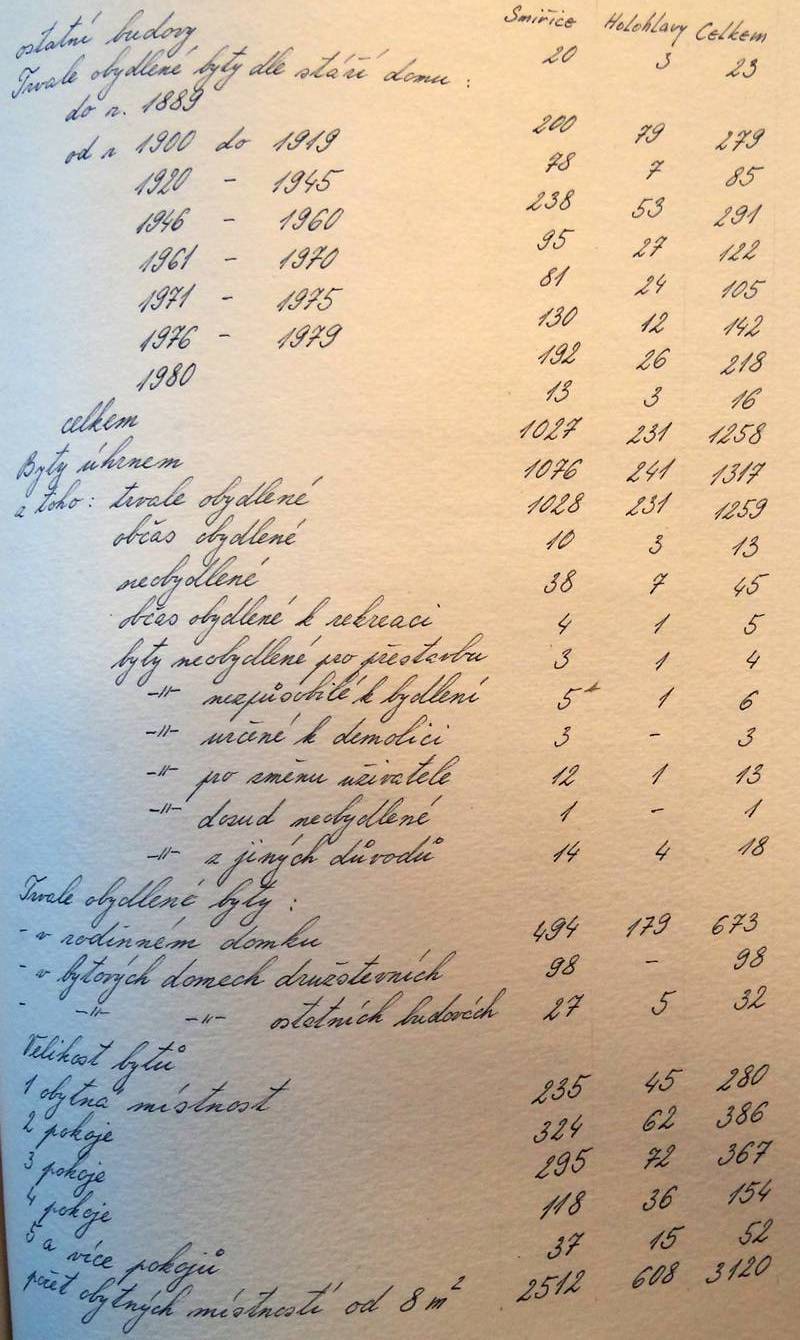 Smiřice Holohlavy Celkem
ostatní budovy 20 3 23
Trvale obydlené byty dle stáří domu :
do r. 1889 200 79 279
od r 1900 do 1919 78 7 85
1920 - 1945 238 53 291
1946 - 1960 95 27 122
1961 - 1970 81 24 105
1971 - 1975 130 12 142
1976 - 1979 192 26 218
1980 13 3 16
celkem 1027 231 1258
Byty úhrnem 1076 241 1317
z toho : trvale obydlené 1028 231 1259
občas obydlené 10 3 13
neobydlené 38 7 45
občas obydlené k rekreaci 4 1 5
byty neobydlené pro přestavbu 3 1 4
-"- nezpůsobilé k bydlení 5 1 6
-"- určené k demolici 3 - 3
-"- pro změnu uživatele 12 1 13
-"- dosud neobydlené 1 - 1
-"- z jiných důvodů 14 4 18
Trvale obydlené byty :
- v rodinném domku 494 179 673
- v bytových domech družstevních 98 - 98
- -"- -"- ostatních budovách 27 5 32
Velikost bytů
1 obytná místnost 235 45 280
2 pokoje 324 62 386
3 pokoje 295 72 367
4 pokoje 118 36 154
5 a více pokojů 37 15 52
počet obytných místností od 8 m² 2512 608 3120